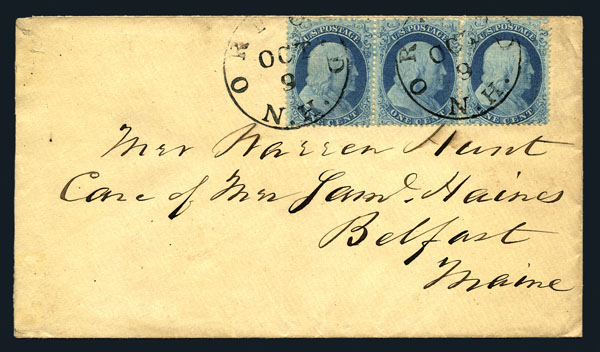 U.S. POSTAGE
U.S. POSTAGE
U.S. POSTAGE
OCT
9
N.H.
OCT
9
N.H.
ONE CENT
ONE CENT
ONE CENT
Mrs Warren Hunt
Care of Mrs Saml. Haines
Belfast
Maine